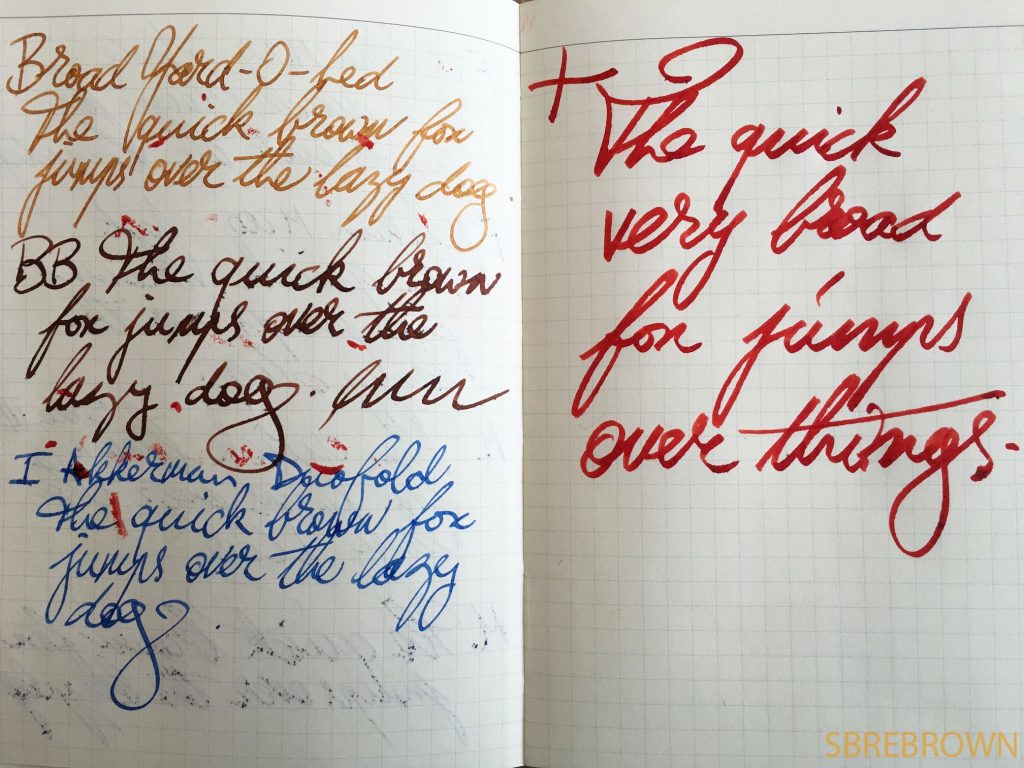 Broad Yard-O-Led
The quick brown fox
jumps over the lazy dog.
BB The quick brown
fox jumps over the
lazy dog.
I Akkerman Duofold
The quick brown fox
jumps over the lazy
dog
+ The quick
very broad
fox jumps
over things.
SBREBROWN